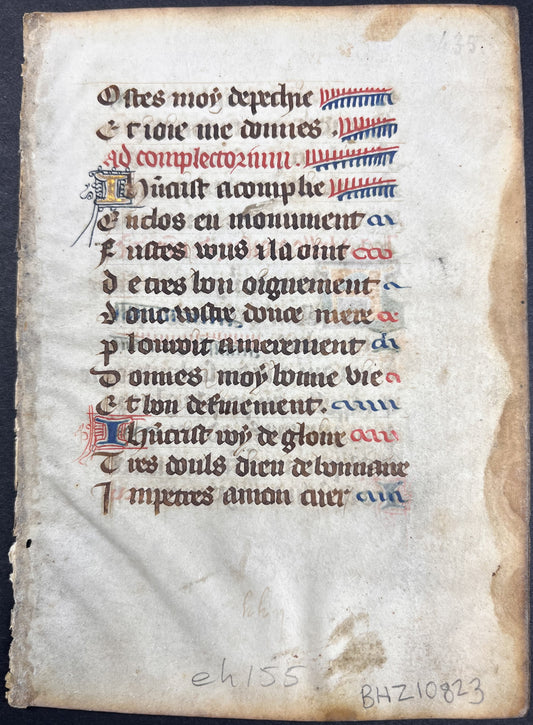 435
Ostes moy depechie
Et ioie me donnes.
Ad complectorium
Ihūcrist acomplie
Enclos en monument
Fustes vous il a oint
de tres bon oignement
Donc vostre douce mere
plouroit amerement
Donnes moy bonne vie
Et bon definement.
Ihūcrist roy de gloire
Tres douls dieu debonnaire
Impetres a mon cuer
eh155
BHZ10823